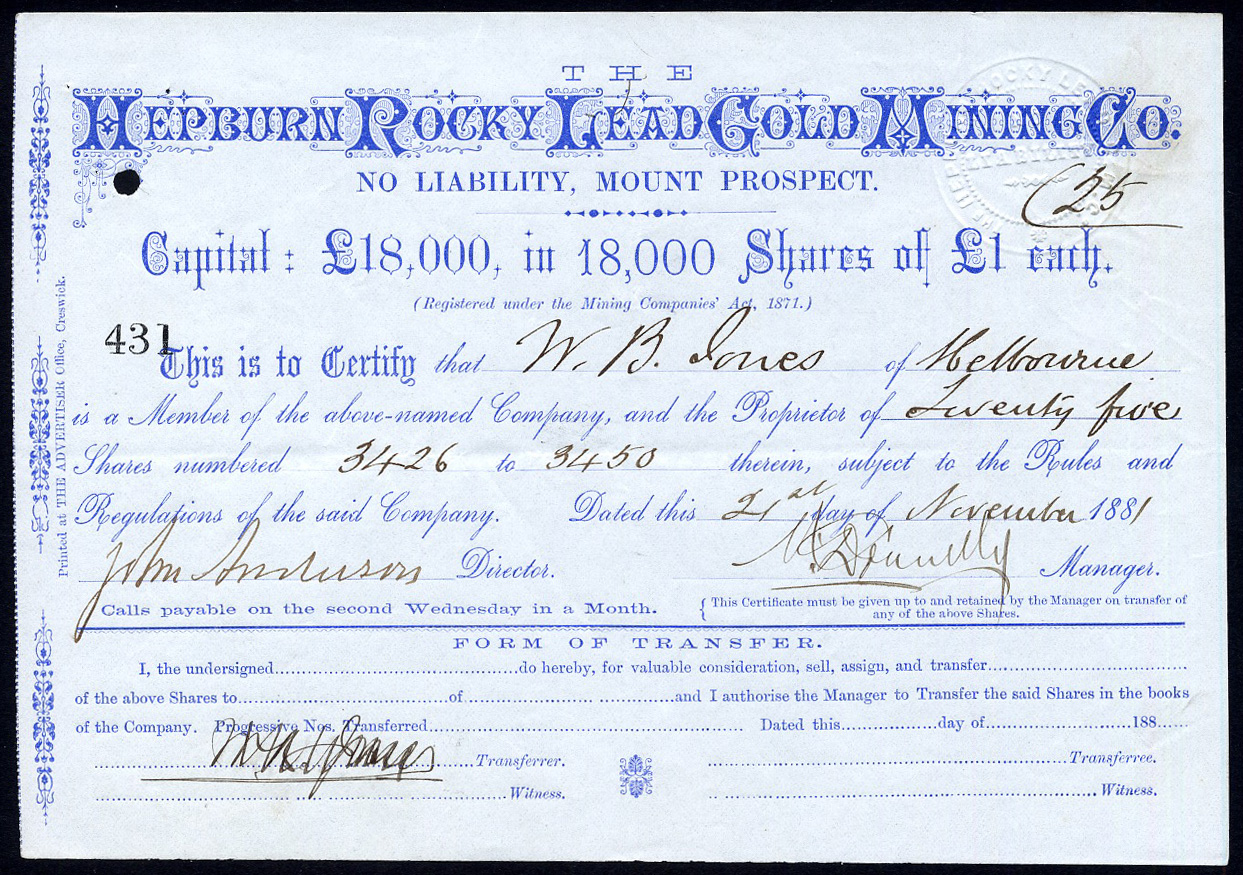 THE
HEPBURN ROCKY LEAD GOLD MINING CO.
NO LIABILITY, MOUNT PROSPECT.
25
Capital: £18,000, in 18,000 Shares of £1 each.
(Registered under the Mining Companies' Act, 1871.)
431
This is to Certify that W. B. Jones of Melbourne
is a Member of the above-named Company, and the Proprietor of Twenty five
Shares numbered 3426 to 3450 therein, subject to the Rules and
Regulations of the said Company. Dated this 21st day of November 1881
John Anderson Director. Donnelly Manager.
Calls payable on the second Wednesday in a Month. { This Certificate must be given up to and retained by the Manager on transfer of
any of the above Shares.
FORM OF TRANSFER.
I, the undersigned do hereby, for valuable consideration, sell, assign, and transfer
of the above Shares to of and I authorise the Manager to Transfer the said Shares in the books
of the Company. Progressive Nos. Transferred Dated this day of 188
W. B. Jones Transferrer. Transferree.
Witness. Witness.
Printed at THE ADVERTISER Office, Creswick.